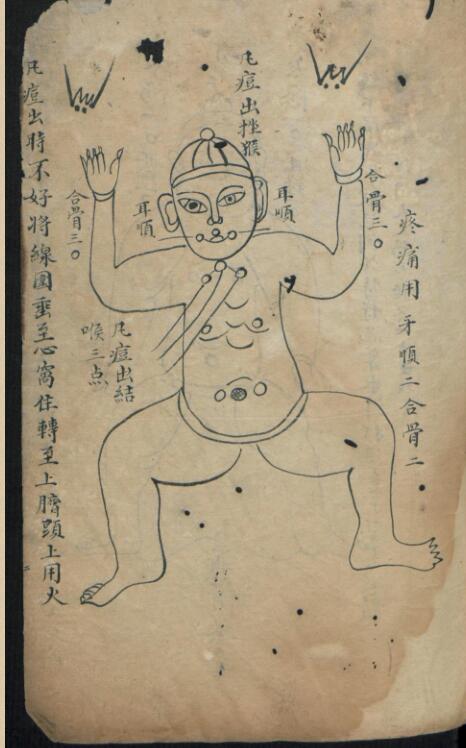 疼痛用牙順二合骨二
合骨三〇
耳順
凡痘出挫猴
耳順
凡痘出結
喉三点
合骨三〇
凡痘出時不好將線圍垂至心窩住轉至上臍上用火